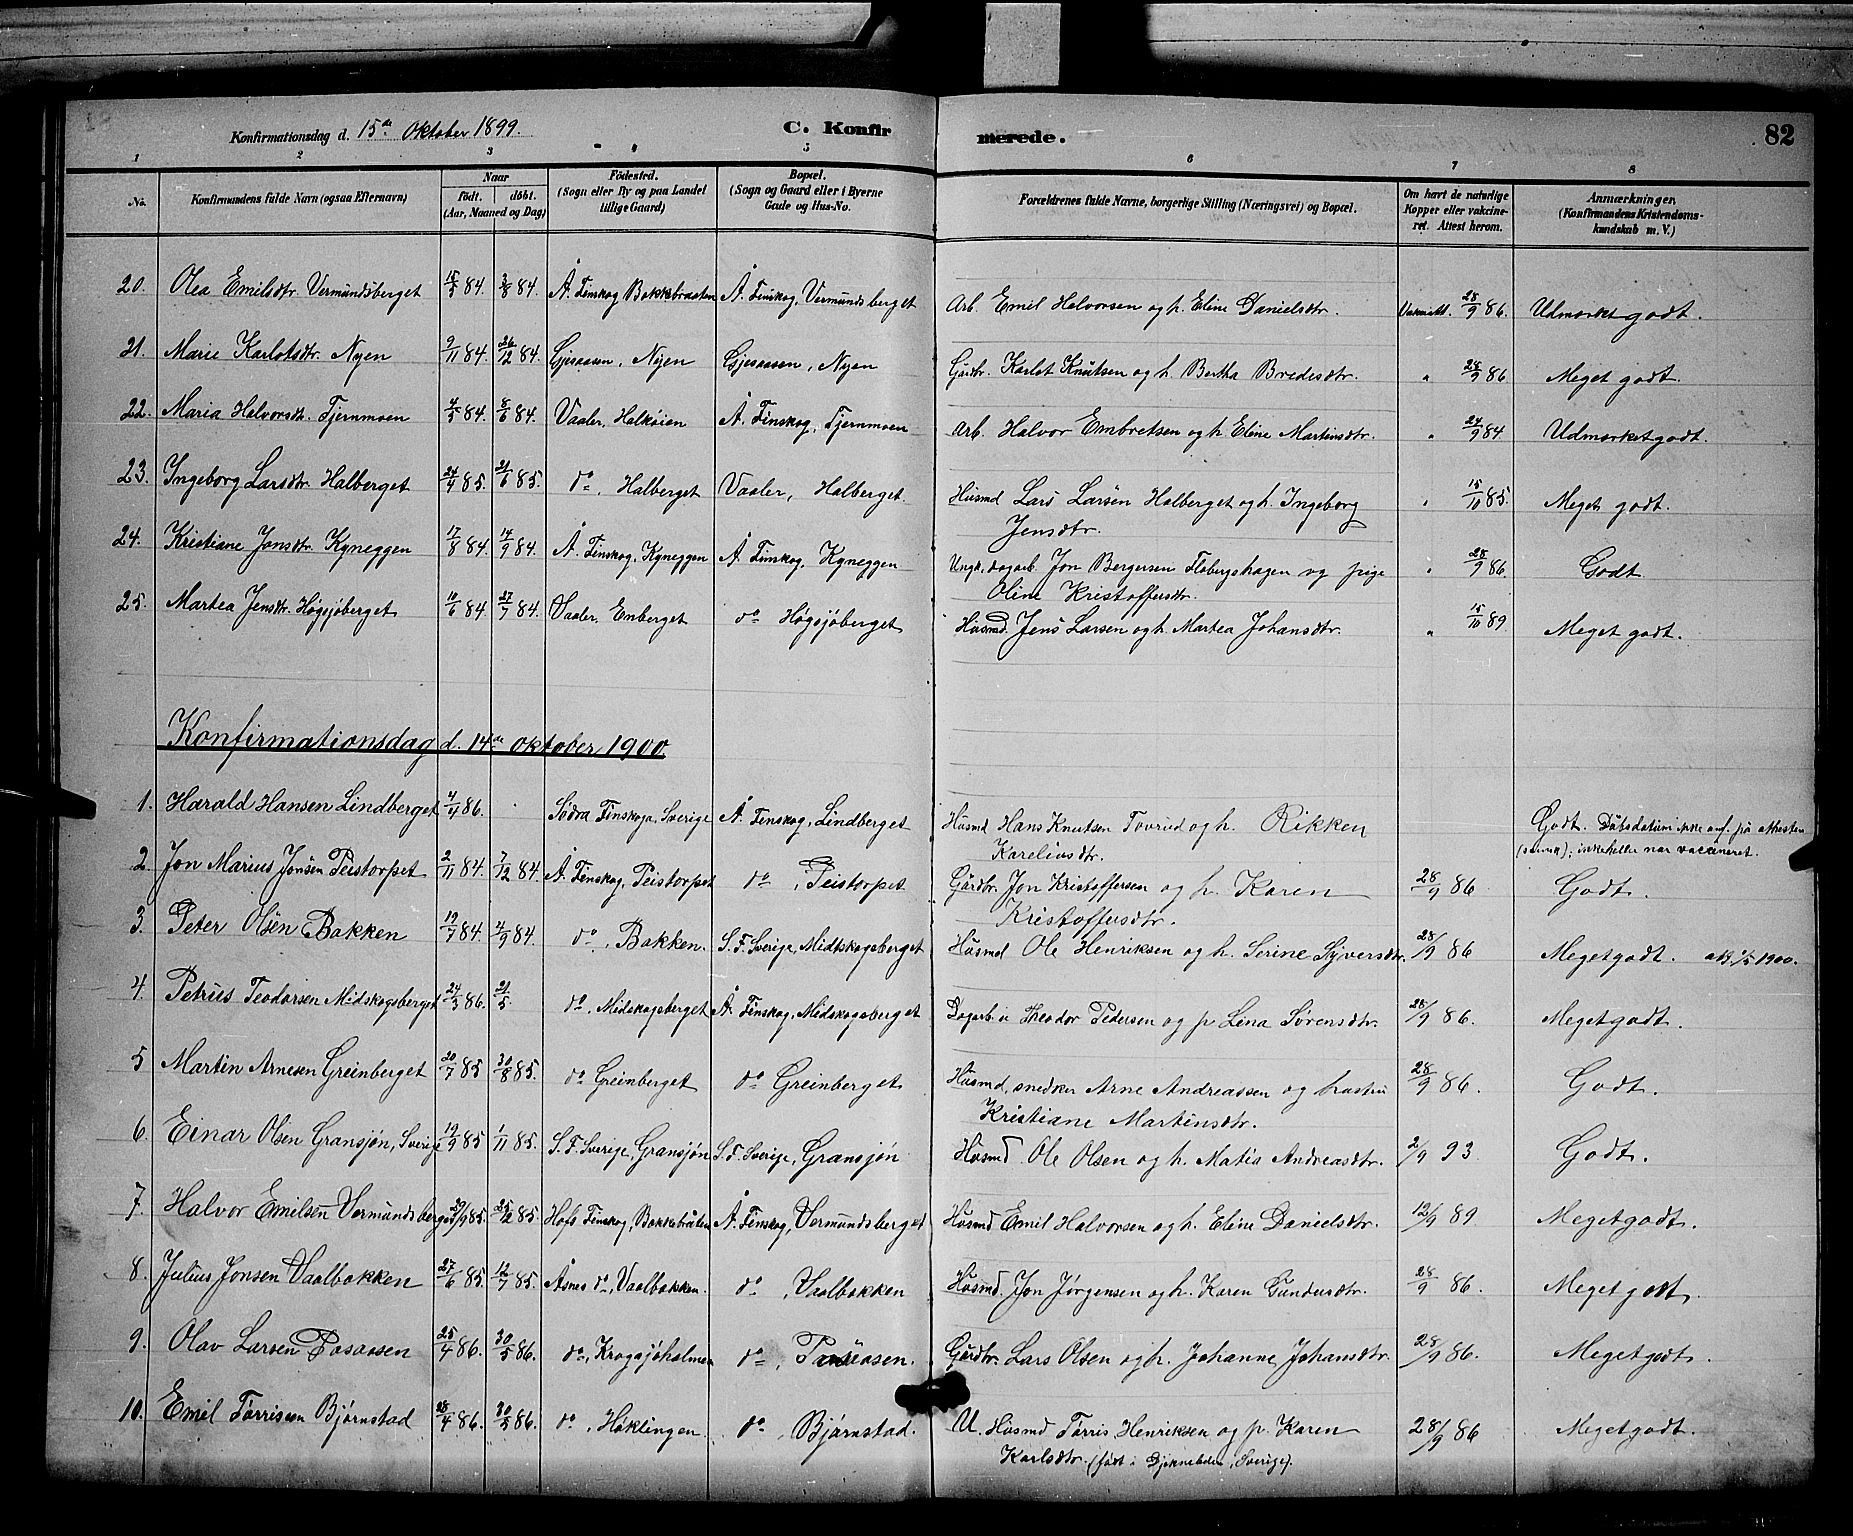 Konfirmationsdag d. 15de Oktober 1899.
C. Konfirmerede.
82
1 2 3 4 5 6 7 8
No.
Konfirmandens fulde Navn (ogsaa Efternavn)
Naar
født. døbt.
(Aar, Maaned og Dag)
Fødested.
(Sogn eller By og paa Landet
tillige Gaard)
Bopæl.
(Sogn og Gaard eller i Byerne
Gade og Hus-No.
Forældrenes fulde Navne, borgerlige Stilling (Næringsvei) og Bopæl.
Om havt de naturlige
Kopper eller vakcine-
ret. Attest herom.
Anmærkninger.
(Konfirmandens Kristendoms-
kundskab m. V.)
20. Olea Emilsdtr. Vermundsberget 15/5 84. 3/8 84. Å. Finskog Bakkebraaten Å. Finskog, Vermundsberget Arb. Emil Halvorsen og h. Eline Danielsdtr. 28/9 86. Udmærket godt.
21. Marie Karlotsdtr. Nyen 9/11 84. 26/12 84. Gjesaasen, Nyen Gjesaasen, Nyen Gårdbr. Karlot Knutsen og h. Bertha Bredesdtr. " 28/9 86 Meget godt.
22. Maria Halvorsdt. Tjernmoen 4/5 84. 8/6 84. Vaaler, Halkoien Å. Finskog, Tjernmoen Arb. Halvor Embretsen og h Eline Martinsdtr. " 24/9 84 Udmærket godt.
23. Ingeborg Larsdtr. Halberget 24/4 85. 21/6 85. do, Halberget Vaaler, Halberget. Husmd Lars Larsen Halberget og h. Ingeborg
Jensdtr. " 15/10 85. Meget godt.
24. Kristiane Jonsdtr. Kyneggen 17/8 84. 14/9 84. Å. Finskog, Kyneggen Å. Finskog, Kyneggen Ungk. dagarb. Jon Bergersen Flobergshagen og pige
Oline Kristoffersdtr. " 28/9 86. Godt
25. Martea Jensdtr. Høgsjøberget 10/6 84 27/7 84. Vaaler, Enberget do Høgsjøberget Husmd. Jens Larsen og h. Martea Johansdtr. " 15/10 89. Meget godt.
Konfirmationsdag d. 14de oktober 1900.
1. Harald Hansen Lindberget 4/4 86. Södra Finskoga, Sverige Å. Finskog, Lindberget Husmd Hans Knutsen Tovrud og h. Rikken
Kareliusdtr. Godt. Dåbsdatum ikke anf. på attesten
vaccineret.
2. Jon Marius Jonsen Peistorpet 2/11 84. 7/12 84 Å. Finskog, Peistorpet do, Peistorpet. Gårdbr. Jon Kristoffersen og h. Karen
Kristoffersdtr. 28/9 86 Godt.
3. Peter Olsen Bakken 19/7 84. 4/9 84. do, Bakken. S. F. Sverige, Midtskogsberget Husmd Ole Henriksen og h. Serine Syversdtr. 28/9 86 Megetgodt.
4. Petrus Teodorsen Midskogsberget 24/3 86. 21/5 do, Midskogsberget Å. Finskog, Midskogsberget Dagarb. u Theodor Pedersen og p. Lina Sørensdtr. 28/9 86. Megetgodt.
5 Martin Arnesen Greinberget 20/7 85 30/8 85. do Greinberget do Greinberget Husmd, snedker Arne Andreassen og hustru
Kristiane Martinsdtr. 28/9 86. Godt.
6. Einar Olsen Gransjøn, Sverige 19/9 85 1/11 85. S. F. Sverige, Gransjøn S. F. Sverige, Gransjøn Husmd Ole Olsen og h. Matia Andreasdtr. 2/9 93 Godt.
7. Halvor Emilsen Vermundsberget 29/9 85. 25/12 85 Hofs Finskog, Bakkebråten Å. Finskog, Vermundsberget Husmd Emil Halvorsen og h. Eline Danielsdtr. 12/9 89 Megetgodt.
8. Julius Jonsen Vaalbakken 27/6 85. 12/7 85. Åsnes do, Vaalbakken. do, Vaalbakken Husmd. Jon Jørgensen og h. Karen Gundersdtr. 28/9 86. Meget godt.
9. Olav Larsen Pasaasen 25/4 86. 30/5 86. do, Krogsjøholmen do, Pasaasen. Gårdbr. Lars Olsen og h. Johanne Johansdtr. 28/9 86. Megetgodt.
10. Emil Tørrissen Bjørnstad 28/4 86. 30/5 86. do, Høklingen do Bjørnstad. U. Husmd Tørris Henriksen og p. Karen
Karlsdtr. (født i Sverige). 28/9 86 Megetgodt.